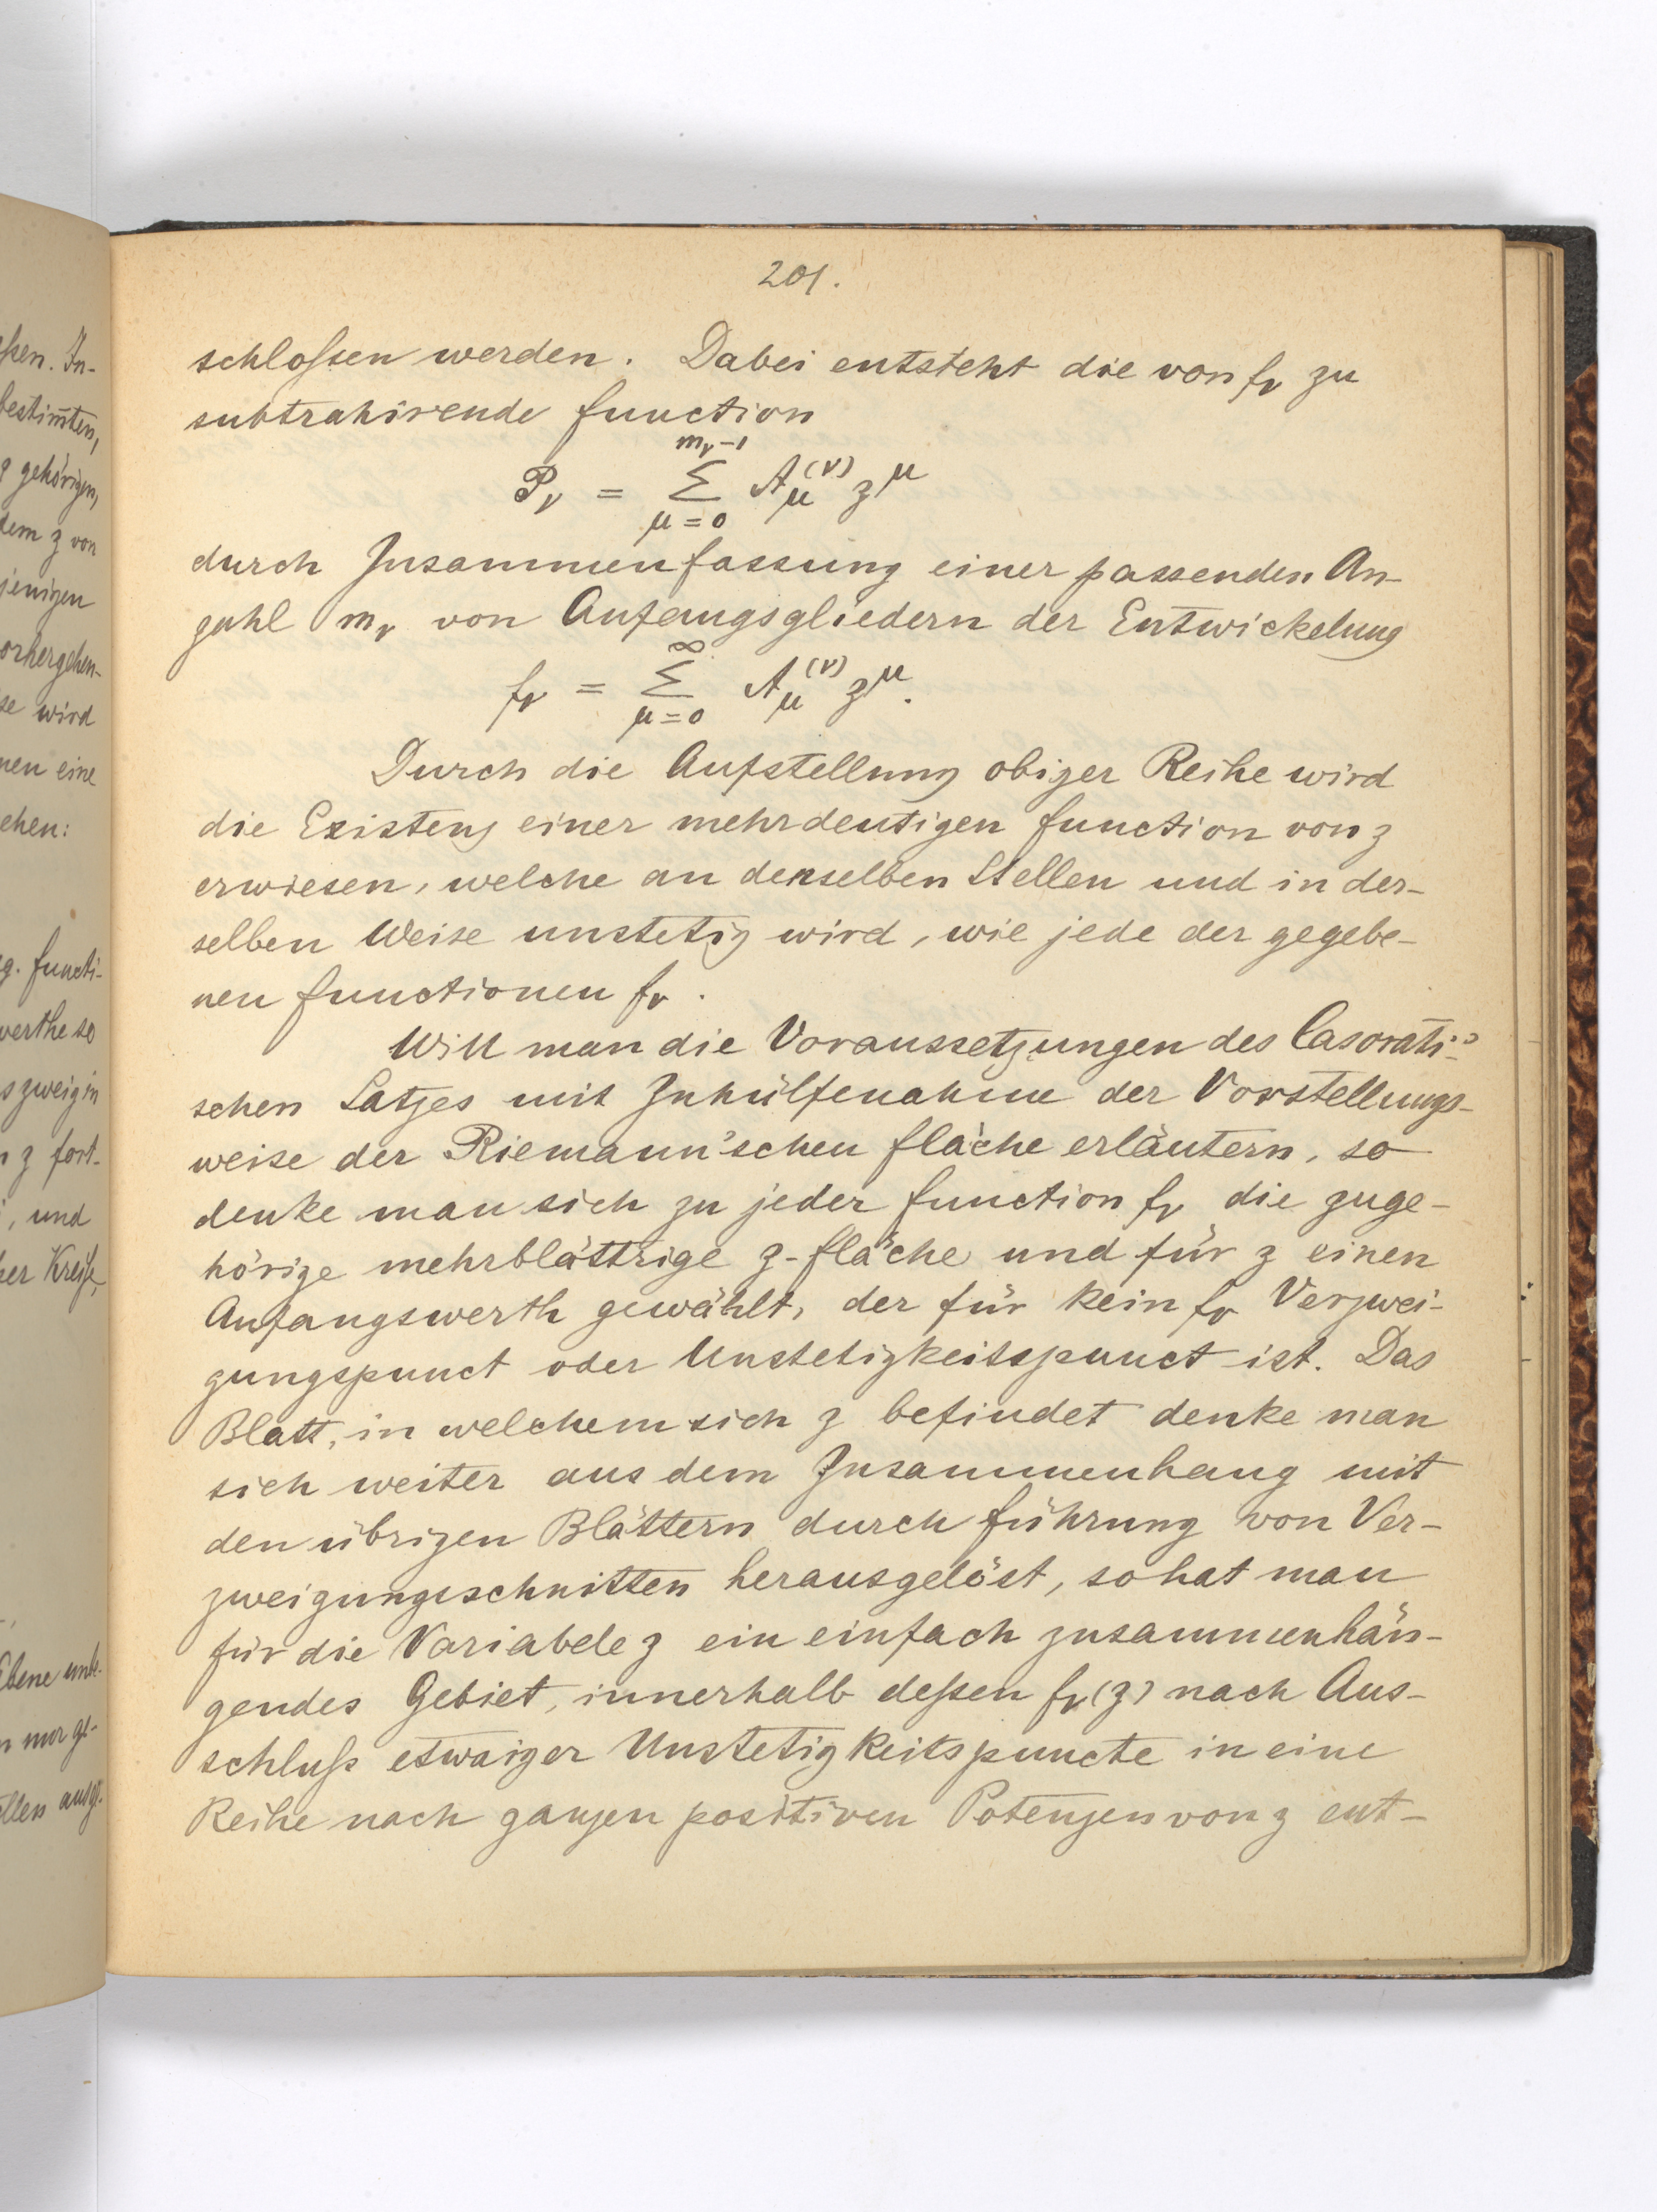 201.
schloſsen werden. Dabei entsteht die von f_ν zu
subtrahirende function
P_ν = Σ_{μ=0}^{m_ν-1} A_μ^{(ν)} z^μ
durch Zusammenfassung einer passenden An-
zahl m_ν von Anfangsgliedern der Entwickelung
f_ν = Σ_{μ=0}^{∞} A_μ^{(ν)} z^μ.
Durch die Aufstellung obiger Reihe wird
die Existenz einer mehrdeutigen function von z
erwiesen, welche an denselben Stellen und in der-
selben Weise unstetig wird, wie jede der gegebe-
nen functionen f_ν.
Will man die Voraussetzungen des Casorati'-
schen Satzes mit Zuhülfenahme der Vorstellungs-
weise der Riemann'schen fläche erläutern, so
denke man sich zu jeder function f_ν die zuge-
hörige mehrblättrige z-fläche und für z einen
Anfangswerth gewählt, der für kein f_ν Verzwei-
gungspunct oder Unstetigkeitspunct ist. Das
Blatt, in welchem sich z befindet denke man
sich weiter aus dem Zusammenhang mit
den übrigen Blättern durch führung von Ver-
zweigungsschnitten herausgelöst, so hat man
für die Variabele z ein einfach zusammenhän-
gendes Gebiet, innerhalb deſsen f_ν(z) nach Aus-
schluſs etwaiger Unstetigkeitspuncte in eine
Reihe nach ganzen positiven Potenzen von z ent-